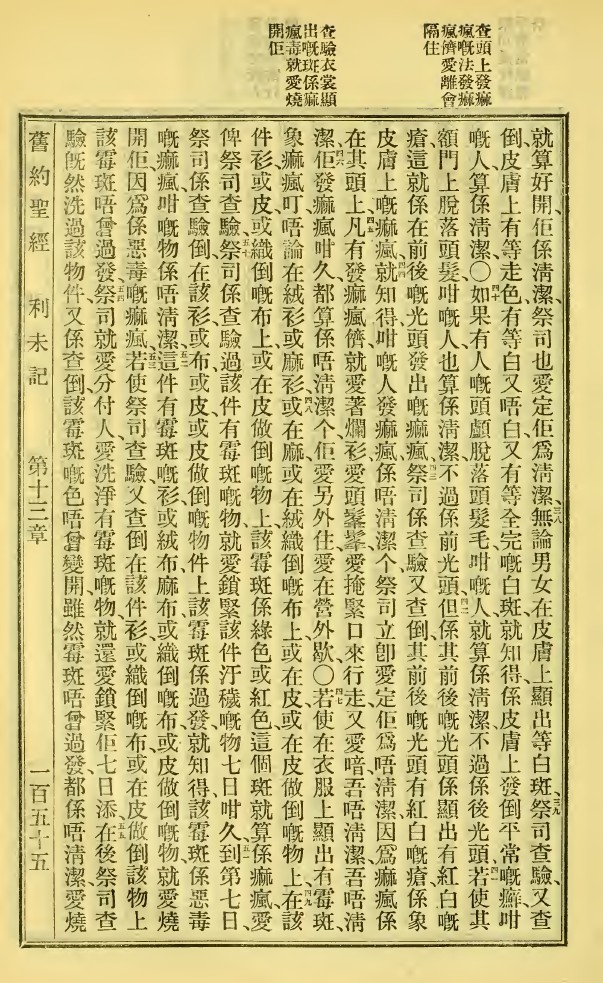 查頭上發痲
瘋嘅法發痲
瘋儕愛離會
隔住
查驗衣裳顯
出嘅斑係痲
瘋毒就愛燒
開佢
就算好開佢係清潔祭司也愛定佢爲清潔三八無論男女在皮膚上顯出等白斑三九祭司查驗又查
倒皮膚上有等走色有等白又唔白又有等全完嘅白斑就知得係皮膚上發倒平常嘅癬咁
嘅人算係清潔〇四十如果有人嘅頭顱脫落頭髮毛咁嘅人就算係清潔不過係後光頭四一若使其
額門上脫落頭髮咁嘅人也算係清潔不過係前光頭四二但係其前後嘅光頭係顯出有紅白嘅
瘡這就係在前後嘅光頭發出嘅痲瘋四三祭司係查驗又查倒其前後嘅光頭有紅白嘅瘡係象
皮膚上嘅痲瘋四四就知得咁嘅人發痲瘋係唔清潔个祭司立卽愛定佢爲唔清潔因爲痲瘋係
在其頭上四五凡有發痲瘋儕就愛著爛衫愛頭鬆鬆愛掩緊口來行走又愛喑吾唔清潔吾唔清
潔四六佢發痲瘋咁久都算係唔清潔个佢愛另外住愛在營外歇〇四七若使在衣服上顯出有霉斑
象痲瘋叮唔論在絨衫或麻衫四八或在麻或在絨織倒嘅布上或在皮或在皮做倒嘅物上四九在該
件衫或皮或織倒嘅布上或在皮做倒嘅物上該霉斑係綠色或紅色這個斑就算係痲瘋愛
俾祭司查驗五十祭司係查驗過該件有霉斑嘅物就愛鎖緊該件汙穢嘅物七日咁久五一到第七日
祭司係查驗倒在該衫或布或皮或皮做倒嘅物件上該霉斑係過發就知得該霉斑係惡毒
嘅痲瘋咁嘅物係唔清潔五二這件有霉斑嘅衫或絨布麻布或織倒嘅布或皮做倒嘅物就愛燒
開佢因爲係惡毒嘅痲瘋五三若使祭司查驗又查倒在該件衫或織倒嘅布或在皮做倒該物上
該霉斑唔曾過發五四祭司就愛分付人愛洗淨有霉斑嘅物就還愛鎖緊佢七日添五五在後祭司查
驗旣然洗過該物件又係查倒該霉斑嘅色唔曾變開雖然霉斑唔曾過發都係唔清潔愛燒
舊約聖經 利未記 第十三章 一百五十五